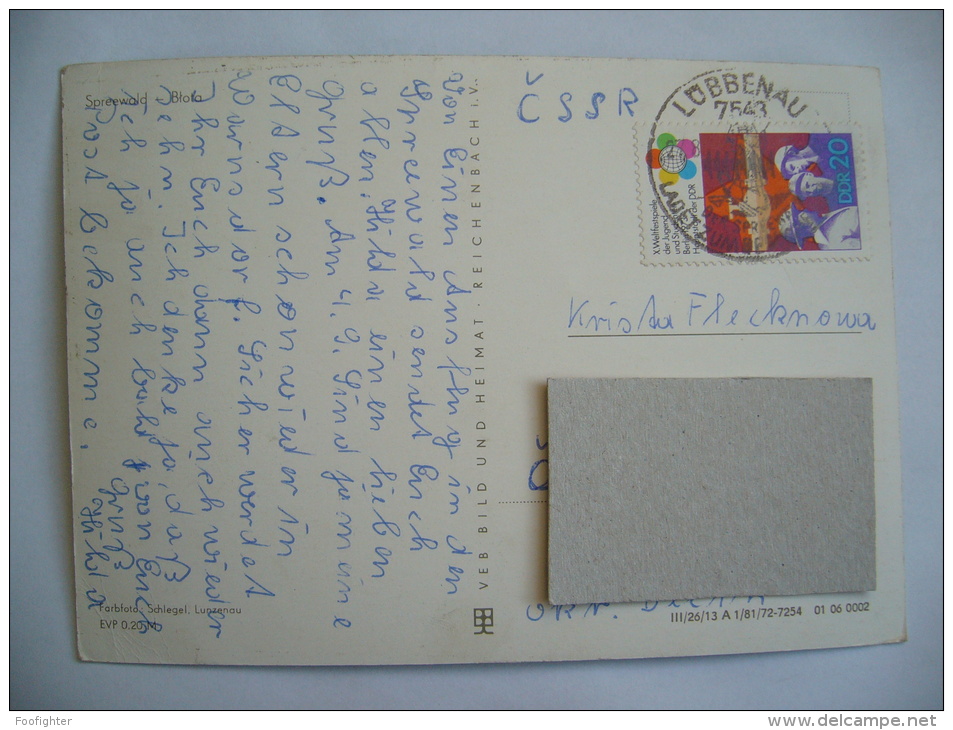 Spreewald Błota
Von einem Ausflug in den
Spreewald sendet Euch
allen Hilda einen lieben
Gruß. Am 4. 9. sind ja meine
Eltern schon wieder in
Warnsdorf. Sicher werdet
Ihr Euch dann auch wieder
sehn. Ich denke ja, daß
ich ja auch bald von Euch
Post bekomme.
Gruß
Hilda
Farbfoto: Schlegel, Lunzenau
EVP 0.20 M
VEB BILD UND HEIMAT · REICHENBACH i. V.
ČSSR
LÜBBENAU
7543
X. Weltfestspiele
der Jugend
und Studenten
Berlin
Hauptstadt der DDR
DDR 20
Krista Flecknowa
OKR. DĚČÍN
III/26/13 A 1/81/72-7254 01 06 0002
Foofighter
www.delcampe.net